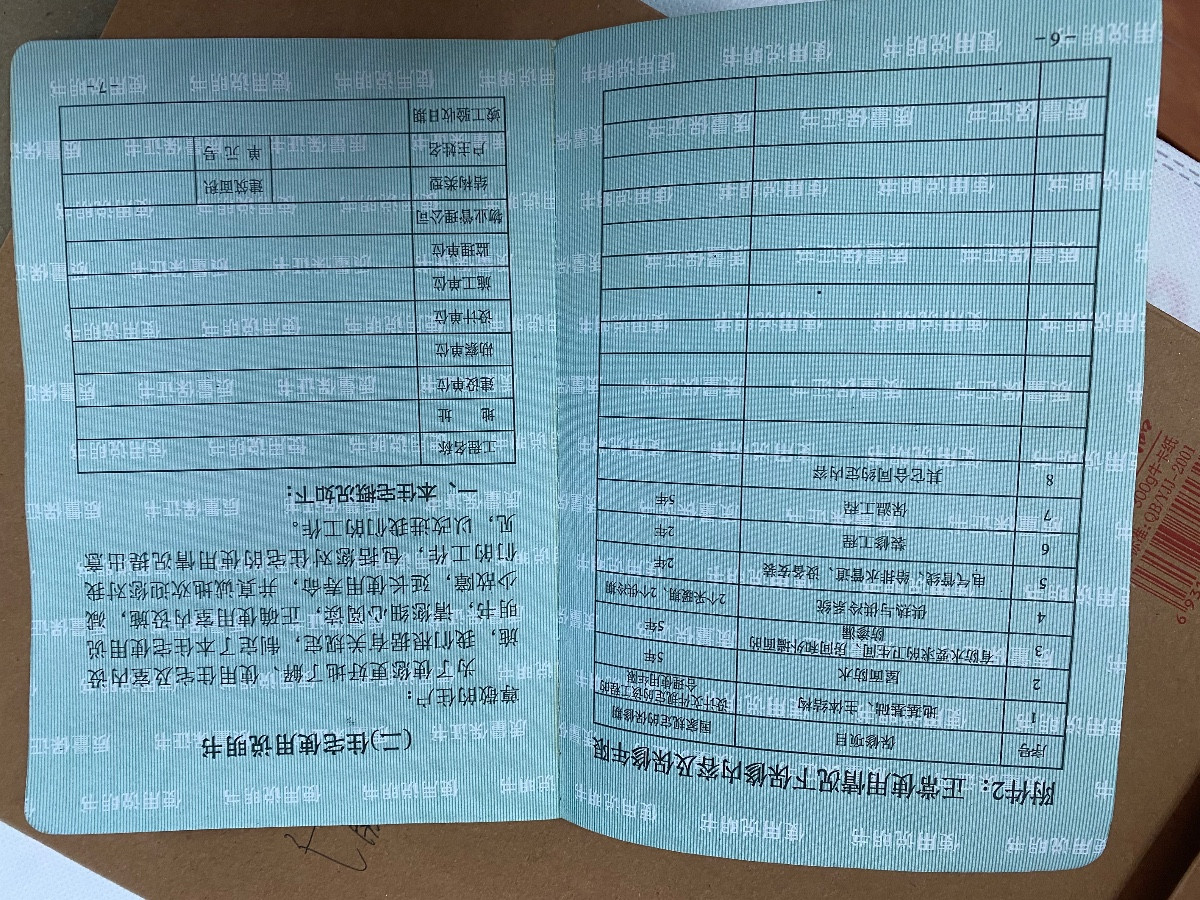 附件2：正常使用情况下保修内容及保修年限
序号 保修项目 国家规定的保修期
1 地基基础、主体结构 设计文件规定的该工程的
合理使用年限
2 屋面防水 5年
3 有防水要求的卫生间、房间和外墙面的
防渗漏 5年
4 供热与供冷系统 2个采暖期、2个供冷期
5 电气管线、给排水管道、设备安装 2年
6 装修工程 2年
7 保温工程 5年
8 其它合同约定内容
-6-
(二)住宅使用说明书
尊敬的住户：
为了使您更好地了解、使用住宅及室内设
施，我们根据有关规定，制定了本住宅使用说
明书，请您细心阅读，正确使用室内设施，减
少故障，延长使用寿命，并真诚地欢迎您对我
们的工作，包括您对住宅的使用情况提出意
见，以改进我们的工作。
一、本住宅概况如下：
工程名称
地 址
建设单位
勘察单位
设计单位
施工单位
监理单位
物业管理公司
结构类型 建筑面积
户主姓名 单元号
竣工验收日期
-7-
使用说明书
质量保证书
300g牛卡纸
标准：QB/YJJ-2001